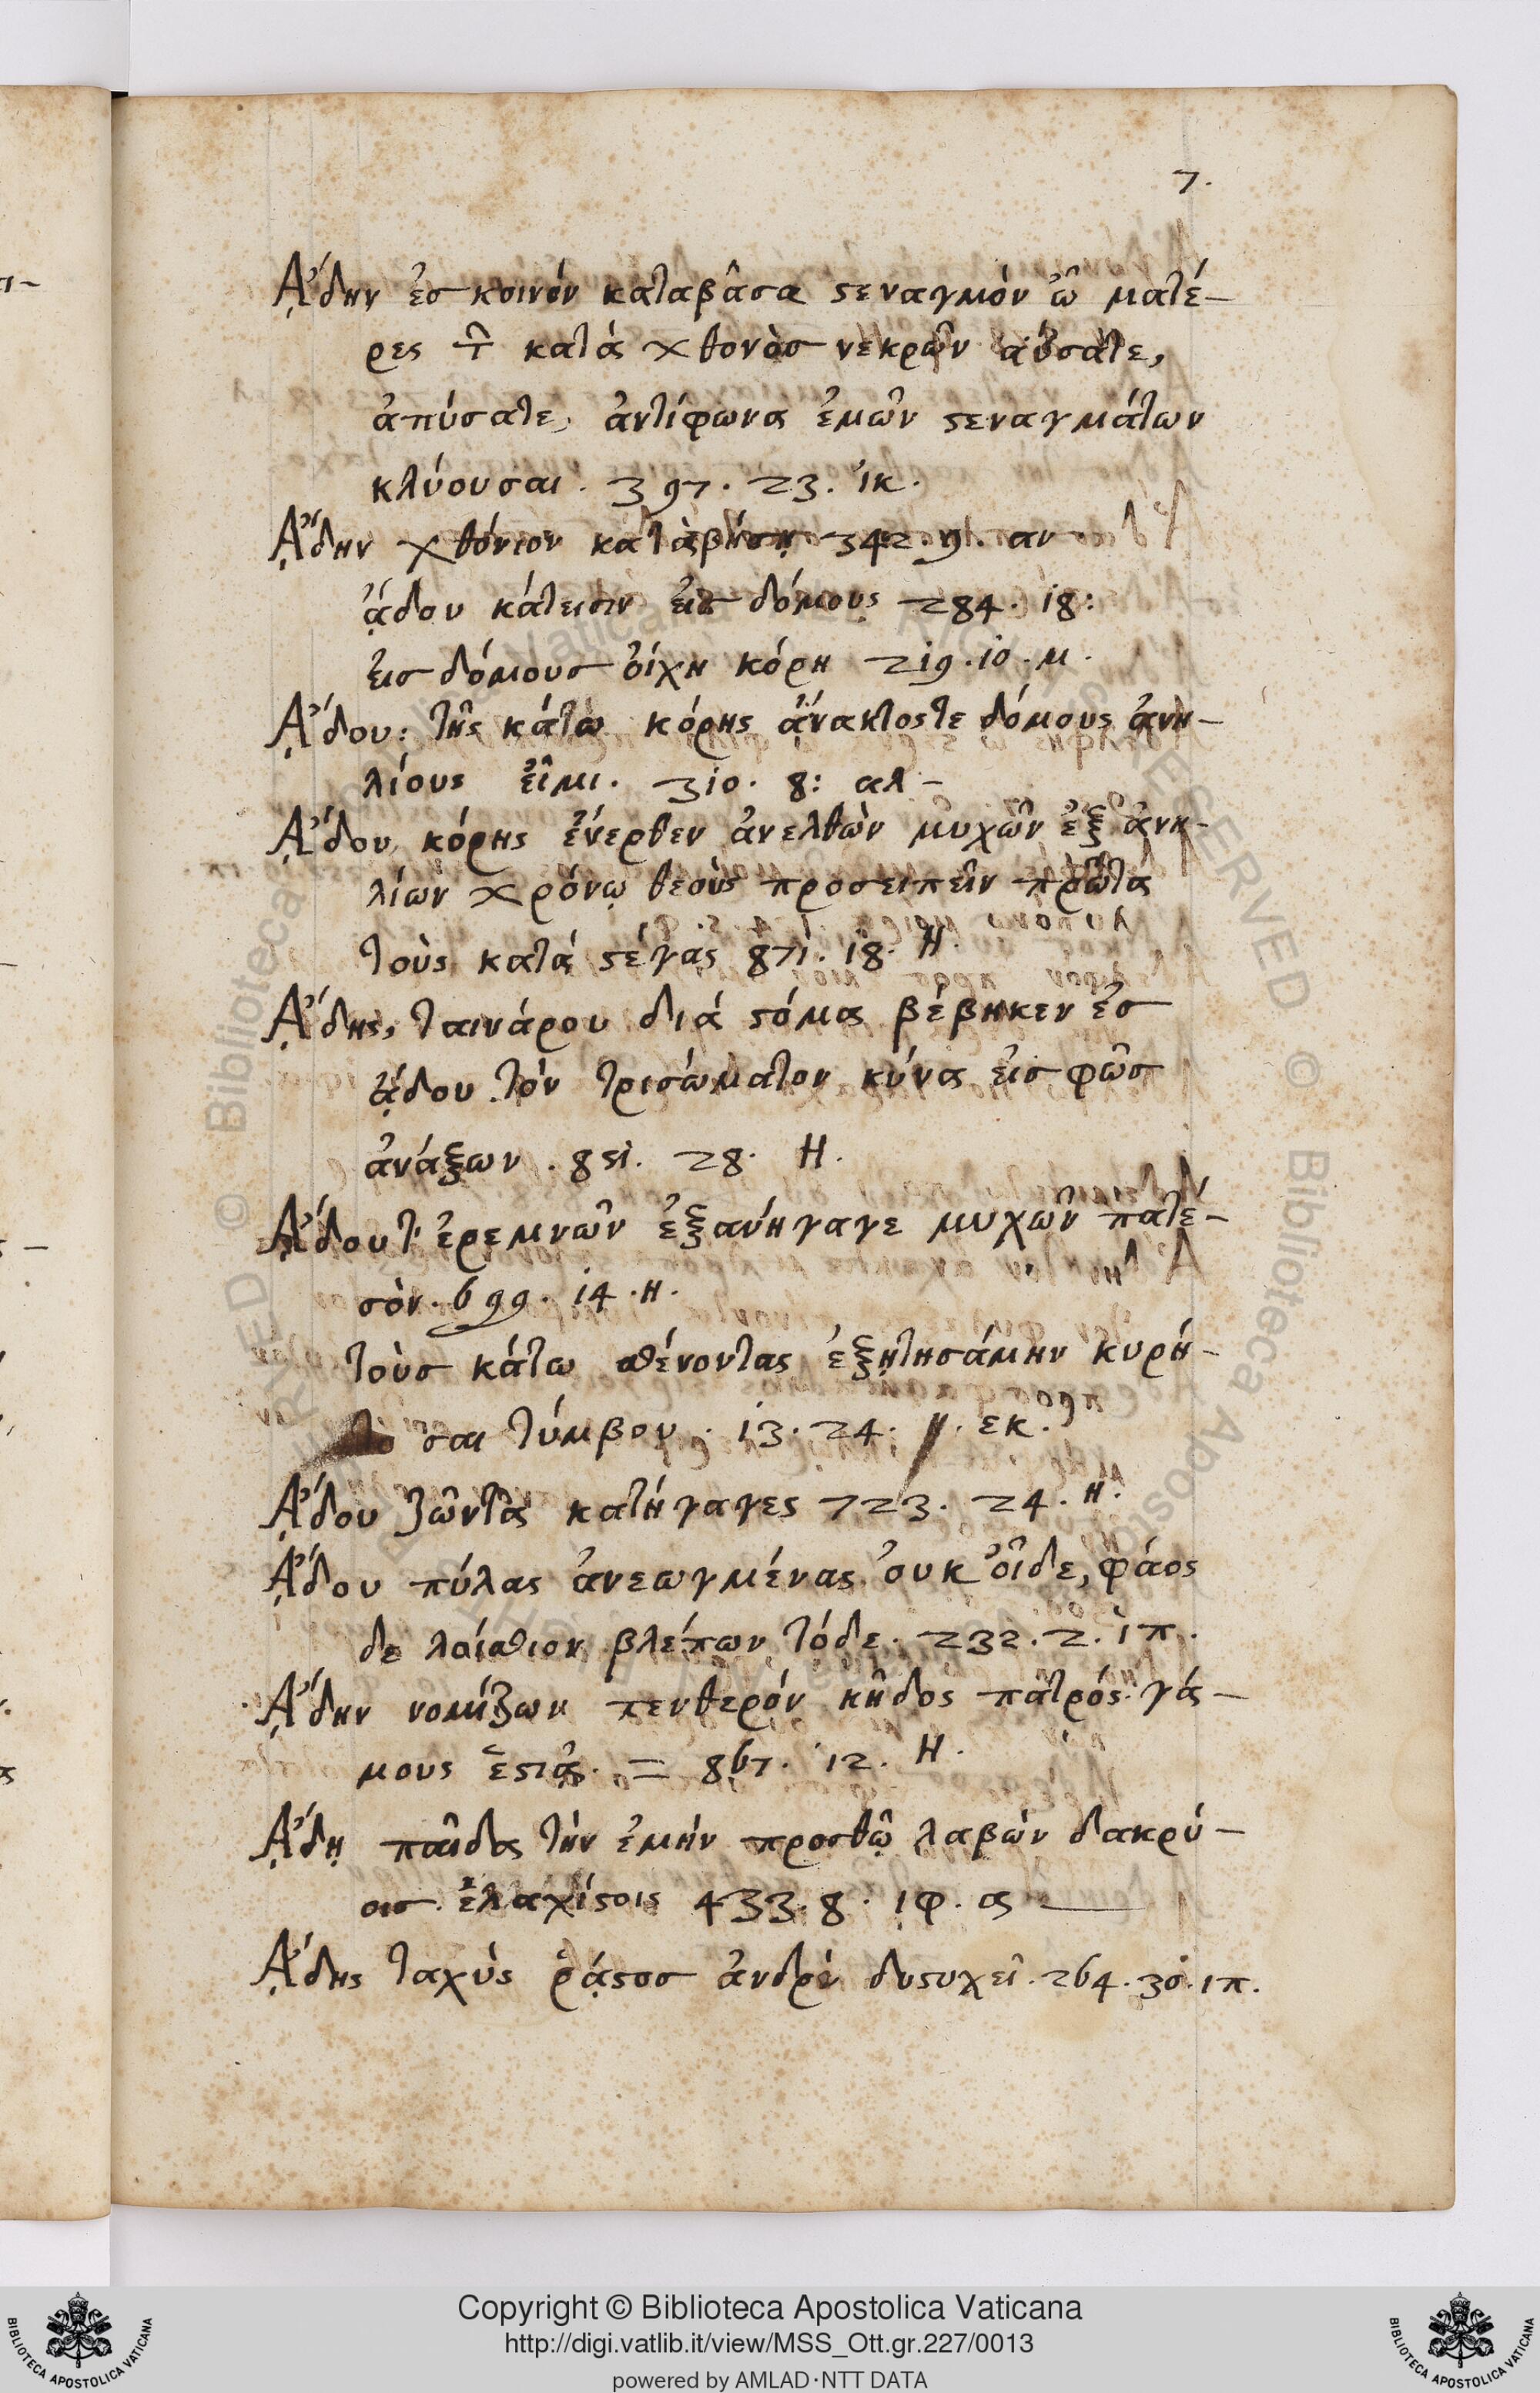 7.
ᾍδην ἐσ κοινόν καταβᾶσα ϛεναγμὸν ὦ ματέ-
ρες κατά χθονὸσ νεκρῶν ἀΰσατε,
ἀπύσατε, ἀντίφωνα ἐμῶν ϛεναγμάτων
κλύουσαι. 397. 23. ἱκ.
ᾍδην χθόνιον καταβήσῃ 342. 9. αν
ᾅδου κάτεισιν εἰσ δόμους 284. 18:
εἰσ δόμουσ οἴχη κόρη 219. 10. μ.
ᾍδου: τῆς κάτω κόρης ἄνακτοςτε δόμους ἀνη-
λίους εἶμι. 310. 8: αλ-
ᾍδου κόρης ἔνερθεν ἀνελθὼν μυχῶν ἐξ ἀνη-
λίων χρόνῳ θεοὺς προσειπεῖν πρῶτα
τοὺς κατά ϛέγας 871. 18. Η.
ᾍδης, ταινάρου διά ϛόμα βέβηκεν ἐσ
ᾅδου τὸν τρισώματον κύνα εἰσ φῶσ
ἀνάξων. 851. 28. Η.
ᾍδου τ' ἐρεμνῶν ἐξανήγαγε μυχῶν πατε-
σὸν. 699. 14. Η.
τοὺσ κάτω σθένοντας ἐξῃτησάμην κυρή-
σαι τύμβου. 13. 24. εκ.
ᾍδου ζῶντα κατήγαγες 723. 24. Η.
ᾍδου πύλας ἀνεωγμένας οὐκ οἶδε, φάος
δε λοίσθιον βλέπων τόδε. 232. 2. ἱπ.
ᾍδην νομίζων πενθερόν κῆδος πατρός γά-
μους ἑϛιᾷ. = 867. 12. Η.
ᾍδῃ παῖδα τὴν ἐμήν προσθῶ λαβὼν δακρύ-
οισ ἐλαχίϛοις 433. 8. ιφ. α
ᾍδης ταχὺς ῥᾷϛοσ ἀνδρὶ δυϛυχεῖ. 264. 30. ιπ.
Copyright © Biblioteca Apostolica Vaticana
http://digi.vatlib.it/view/MSS_Ott.gr.227/0013
powered by AMLAD·NTT DATA
BIBLIOTECA APOSTOLICA VATICANA
BIBLIOTECA APOSTOLICA VATICANA